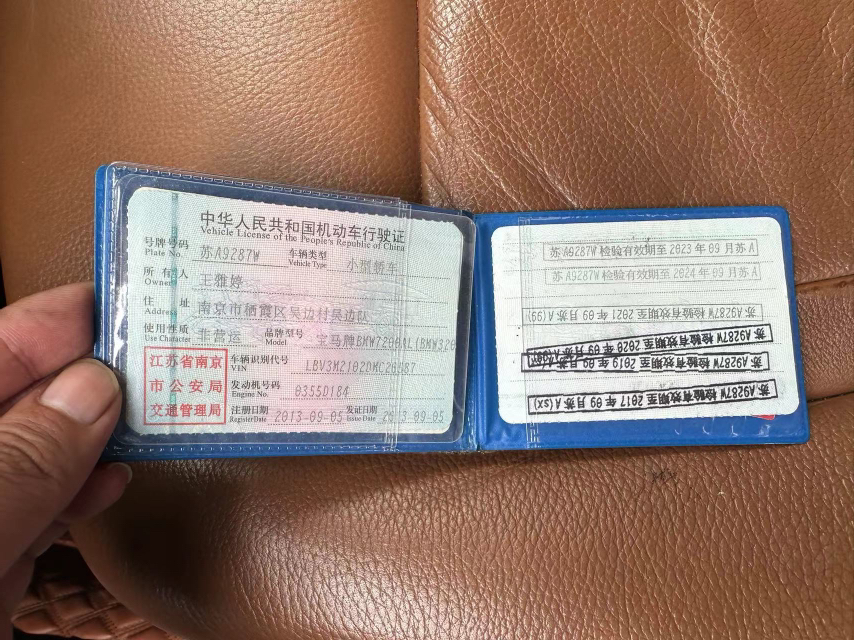 中华人民共和国机动车行驶证
Vehicle License of the People's Republic of China
号牌号码 Plate No. 苏A9287W 车辆类型 Vehicle Type 小型轿车
所有人 Owner 王雅婷
住址 Address 南京市栖霞区吴边村吴边队
使用性质 Use Character 非营运 品牌型号 Model 宝马牌
江苏省南京
市公安局
交通管理局
车辆识别代号 VIN
发动机号码 Engine No. 0355D184
注册日期 Register Date 2013-09-05 发证日期 Issue Date 2013-09-05
苏A9287W 检验有效期至 2023 年 09 月苏A
苏A9287W 检验有效期至 2024 年 09 月苏A
苏A9287W 检验有效期至 2021 年 09 月苏A(99)
苏A9287W 检验有效期至 2020 年 09 月苏A
苏A9287W 检验有效期至 2019 年 09 月苏A
苏A9287W 检验有效期至 2017 年 09 月苏A(sx)